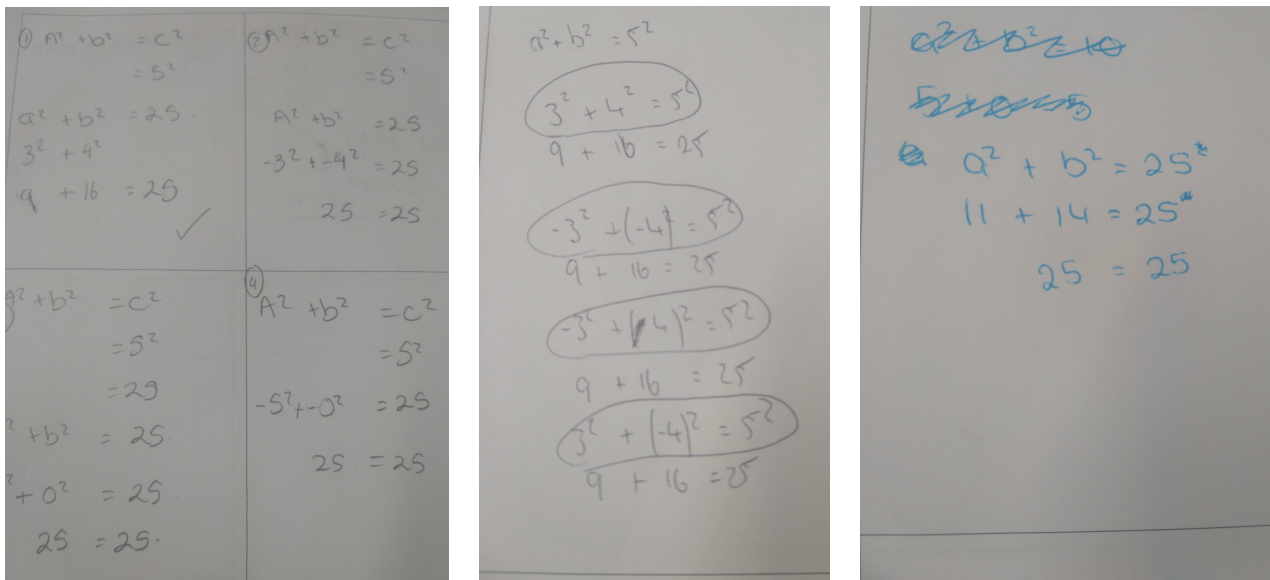 ① A² + b² = c²
= 5²
a² + b² = 25
3² + 4²
9 + 16 = 25
② A² + b² = c²
= 5²
A² + b² = 25
-3² + -4² = 25
25 = 25
A² + b² = c²
= 5²
= 25
² + b² = 25.
² + 0² = 25
25 = 25.
④
A² + b² = c²
= 5²
-5² + -0² = 25
25 = 25
a² + b² = 5²
3² + 4² = 5²
9 + 16 = 25
-3² + (-4)² = 5²
9 + 16 = 25
-3² + (4)² = 5²
9 + 16 = 25
3² + (-4)² = 5²
9 + 16 = 25
a² + b² = 10
a² + b² = 25
11 + 14 = 25
25 = 25